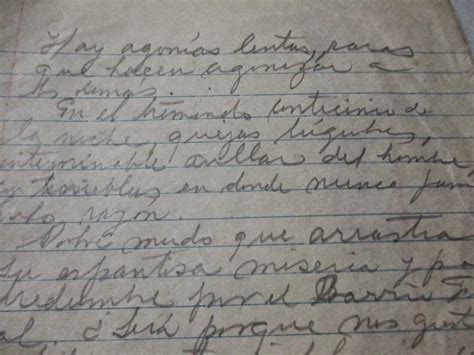 Hay agonías lentas, raras
que hacen agonizar a
los demas.
En el tremendo conticinio de
la noche, quejas lúgubres,
interminable aullar del hombre
en tinieblas en donde nunca
razón.
Pobre mudo que arrastra
su espantosa miseria y po
dredumbre por el Barrio
al. ¿Será porque nos